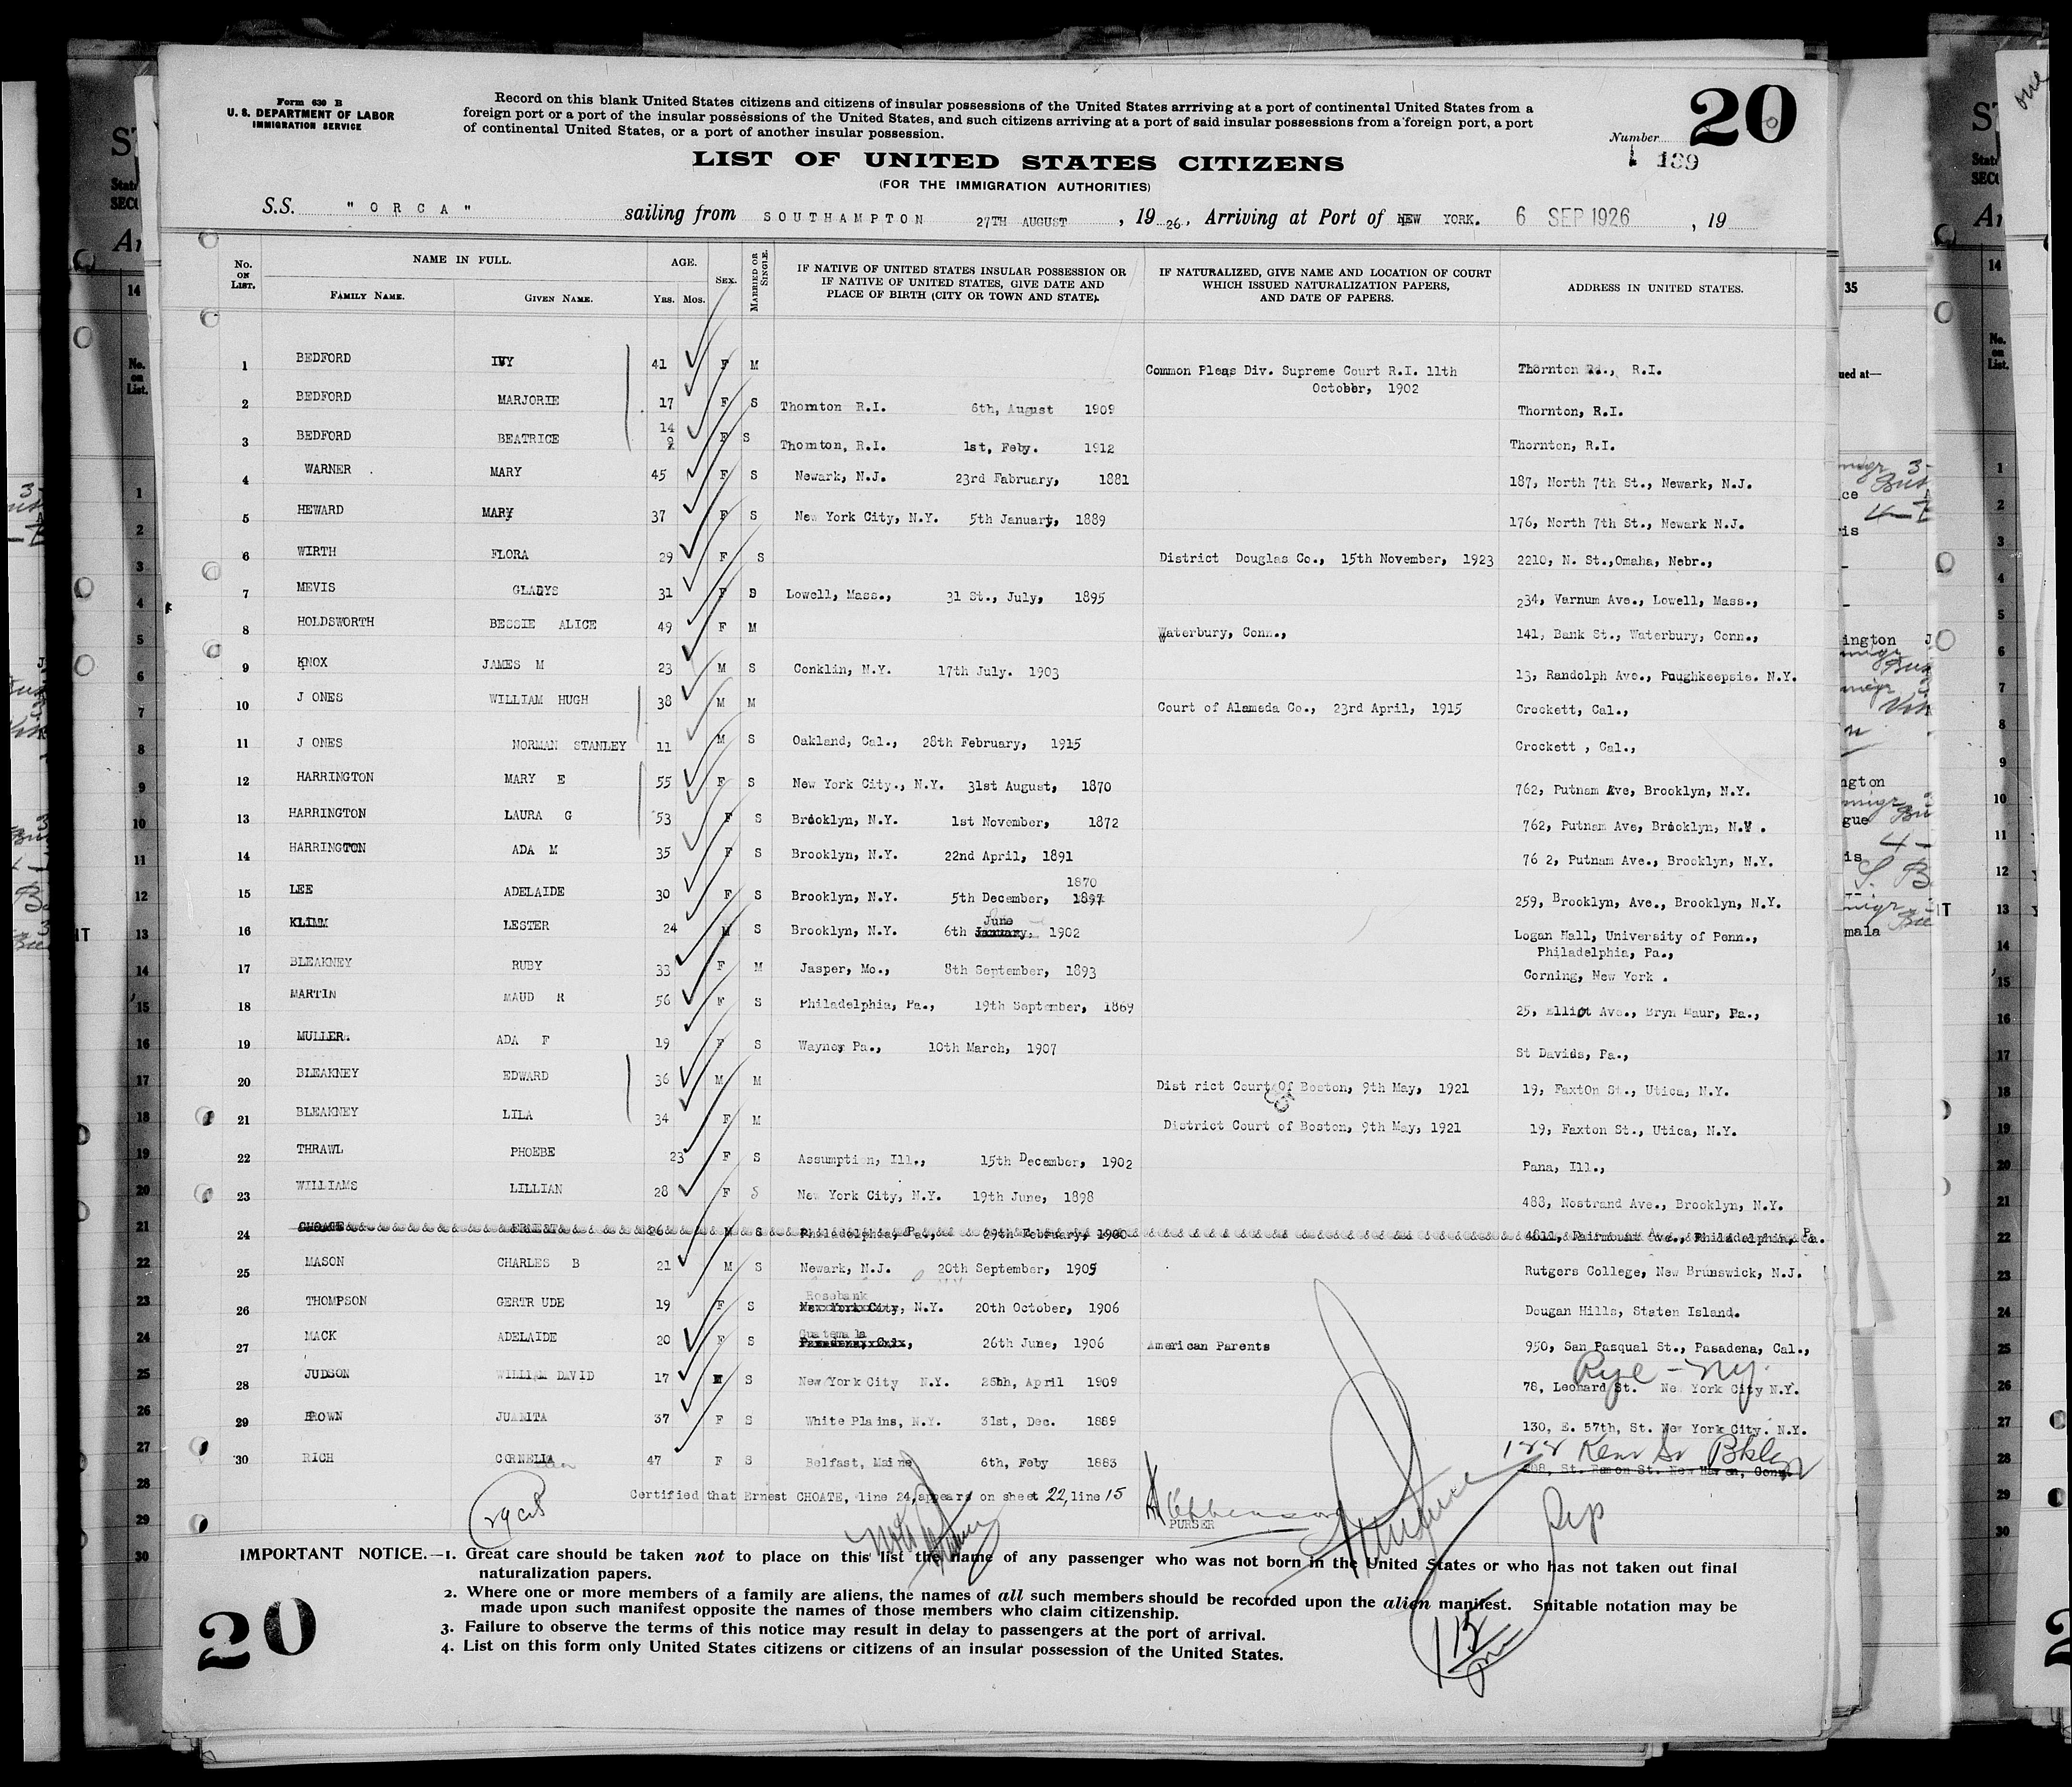 Form 630 B
U. S. DEPARTMENT OF LABOR
IMMIGRATION SERVICE
Record on this blank United States citizens and citizens of insular possessions of the United States arrriving at a port of continental United States from a
foreign port or a port of the insular possessions of the United States, and such citizens arriving at a port of said insular possessions from a foreign port, a port
of continental United States, or a port of another insular possession.
Number 20
189
LIST OF UNITED STATES CITIZENS
(FOR THE IMMIGRATION AUTHORITIES)
S.S. "ORCA" sailing from SOUTHAMPTON 27TH AUGUST , 19 26, Arriving at Port of NEW YORK. 6 SEP 1926 , 19
No. ON LIST. NAME IN FULL. FAMILY NAME. GIVEN NAME. AGE. YRS. MOS. SEX. MARRIED OR SINGLE. IF NATIVE OF UNITED STATES INSULAR POSSESSION OR IF NATIVE OF UNITED STATES, GIVE DATE AND PLACE OF BIRTH (CITY OR TOWN AND STATE). IF NATURALIZED, GIVE NAME AND LOCATION OF COURT WHICH ISSUED NATURALIZATION PAPERS, AND DATE OF PAPERS. ADDRESS IN UNITED STATES.
1 BEDFORD IVY 41 F M Common Pleas Div. Supreme Court R.I. 11th October, 1902 Thornton Rd., R.I.
2 BEDFORD MARJORIE 17 F S Thornton R.I. 6th, August 1909 Thornton, R.I.
3 BEDFORD BEATRICE 14 F S Thornton, R.I. 1st, Feby. 1912 Thornton, R.I.
4 WARNER MARY 45 F S Newark, N.J. 23rd Fabruary, 1881 187, North 7th St., Newark, N.J.
5 HEWARD MARY 37 F S New York City, N.Y. 5th January, 1889 176, North 7th St., Newark N.J.
6 WIRTH FLORA 29 F S District Douglas Co., 15th November, 1923 2210, N. St.,Omaha, Nebr.,
7 MEVIS GLADYS 31 F S Lowell, Mass., 31 St., July, 1895 234, Varnum Ave., Lowell, Mass.,
8 HOLDSWORTH BESSIE ALICE 49 F M Waterbury, Conn., 141, Bank St., Waterbury, Conn.,
9 KNOX JAMES M 23 M S Conklin, N.Y. 17th July. 1903 13, Randolph Ave., Poughkeepsie. N.Y.
10 J ONES WILLIAM HUGH 38 M M Court of Alameda Co., 23rd April, 1915 Crockett, Cal.,
11 J ONES NORMAN STANLEY 11 M S Oakland, Cal., 28th February, 1915 Crockett , Cal.,
12 HARRINGTON MARY E 55 F S New York City., N.Y. 31st August, 1870 762, Putnam Ave, Brooklyn, N.Y.
13 HARRINGTON LAURA G 53 F S Brooklyn, N.Y. 1st November, 1872 762, Putnam Ave, Brooklyn, N.Y.
14 HARRINGTON ADA M 35 F S Brooklyn, N.Y. 22nd April, 1891 76 2, Putnam Ave., Brooklyn, N.Y.
15 LEE ADELAIDE 30 F S Brooklyn, N.Y. 5th December, 1897 1870 259, Brooklyn, Ave., Brooklyn, N.Y.
16 KLIMM LESTER 24 M S Brooklyn, N.Y. 6th January, June 1902 Logan Hall, University of Penn., Philadelphia, Pa.,
17 BLEAKNEY RUBY 33 F M Jasper, Mo., 8th September, 1893 Corning, New York .
18 MARTIN MAUD R 56 F S Philadelphia, Pa., 19th September, 1869 25, Elliot Ave., Bryn Maur, Pa.,
19 MULLER ADA F 19 F S Wayne, Pa., 10th March, 1907 St Davids, Pa.,
20 BLEAKNEY EDWARD 36 M M Dist rict Court Of Boston, 9th May, 1921 19, Faxton St., Utica, N.Y.
21 BLEAKNEY LILA 34 F M District Court of Boston, 9th May, 1921 19, Faxton St., Utica, N.Y.
22 THRAWL PHOEBE 23 F S Assumption, Ill., 15th December, 1902 Pana, Ill.,
23 WILLIAMS LILLIAN 28 F S New York City, N.Y. 19th June, 1898 488, Nostrand Ave., Brooklyn, N.Y.
24 CHOATE ERNEST 26 M S Philadelphia, Pa., 29th February, 1900 4811, Fairmount Ave., Philadelphia, Pa.
25 MASON CHARLES B 21 M S Newark, N.J. 20th September, 1905 Rutgers College, New Brunswick, N.J.
26 THOMPSON GERTR UDE 19 F S Rosebank New York City, N.Y. 20th October, 1906 Dougan Hills, Staten Island.
27 MACK ADELAIDE 20 F S Guatemala 26th June, 1906 American Parents 950, San Pasqual St., Pasadena, Cal.,
28 JUDSON WILLIAM DAVID 17 M S New York City N.Y. 26th, April 1909 Rye - N.Y. 78, Leonard St. New York City N.Y.
29 BROWN JUANITA 37 F S White Plains, N.Y. 31st, Dec. 1889 130, E. 57th, St. New York City. N.Y.
30 RICH CORNELIA 47 F S Belfast, Maine 6th, Feby 1883 St. Ramon St. New Haven, Conn.
Certified that Ernest CHOATE, line 24, appears on sheet 22, line 15
PURSER
IMPORTANT NOTICE.—1. Great care should be taken not to place on this list the name of any passenger who was not born in the United States or who has not taken out final
naturalization papers.
2. Where one or more members of a family are aliens, the names of all such members should be recorded upon the alien manifest. Suitable notation may be
made upon such manifest opposite the names of those members who claim citizenship.
3. Failure to observe the terms of this notice may result in delay to passengers at the port of arrival.
4. List on this form only United States citizens or citizens of an insular possession of the United States.
20